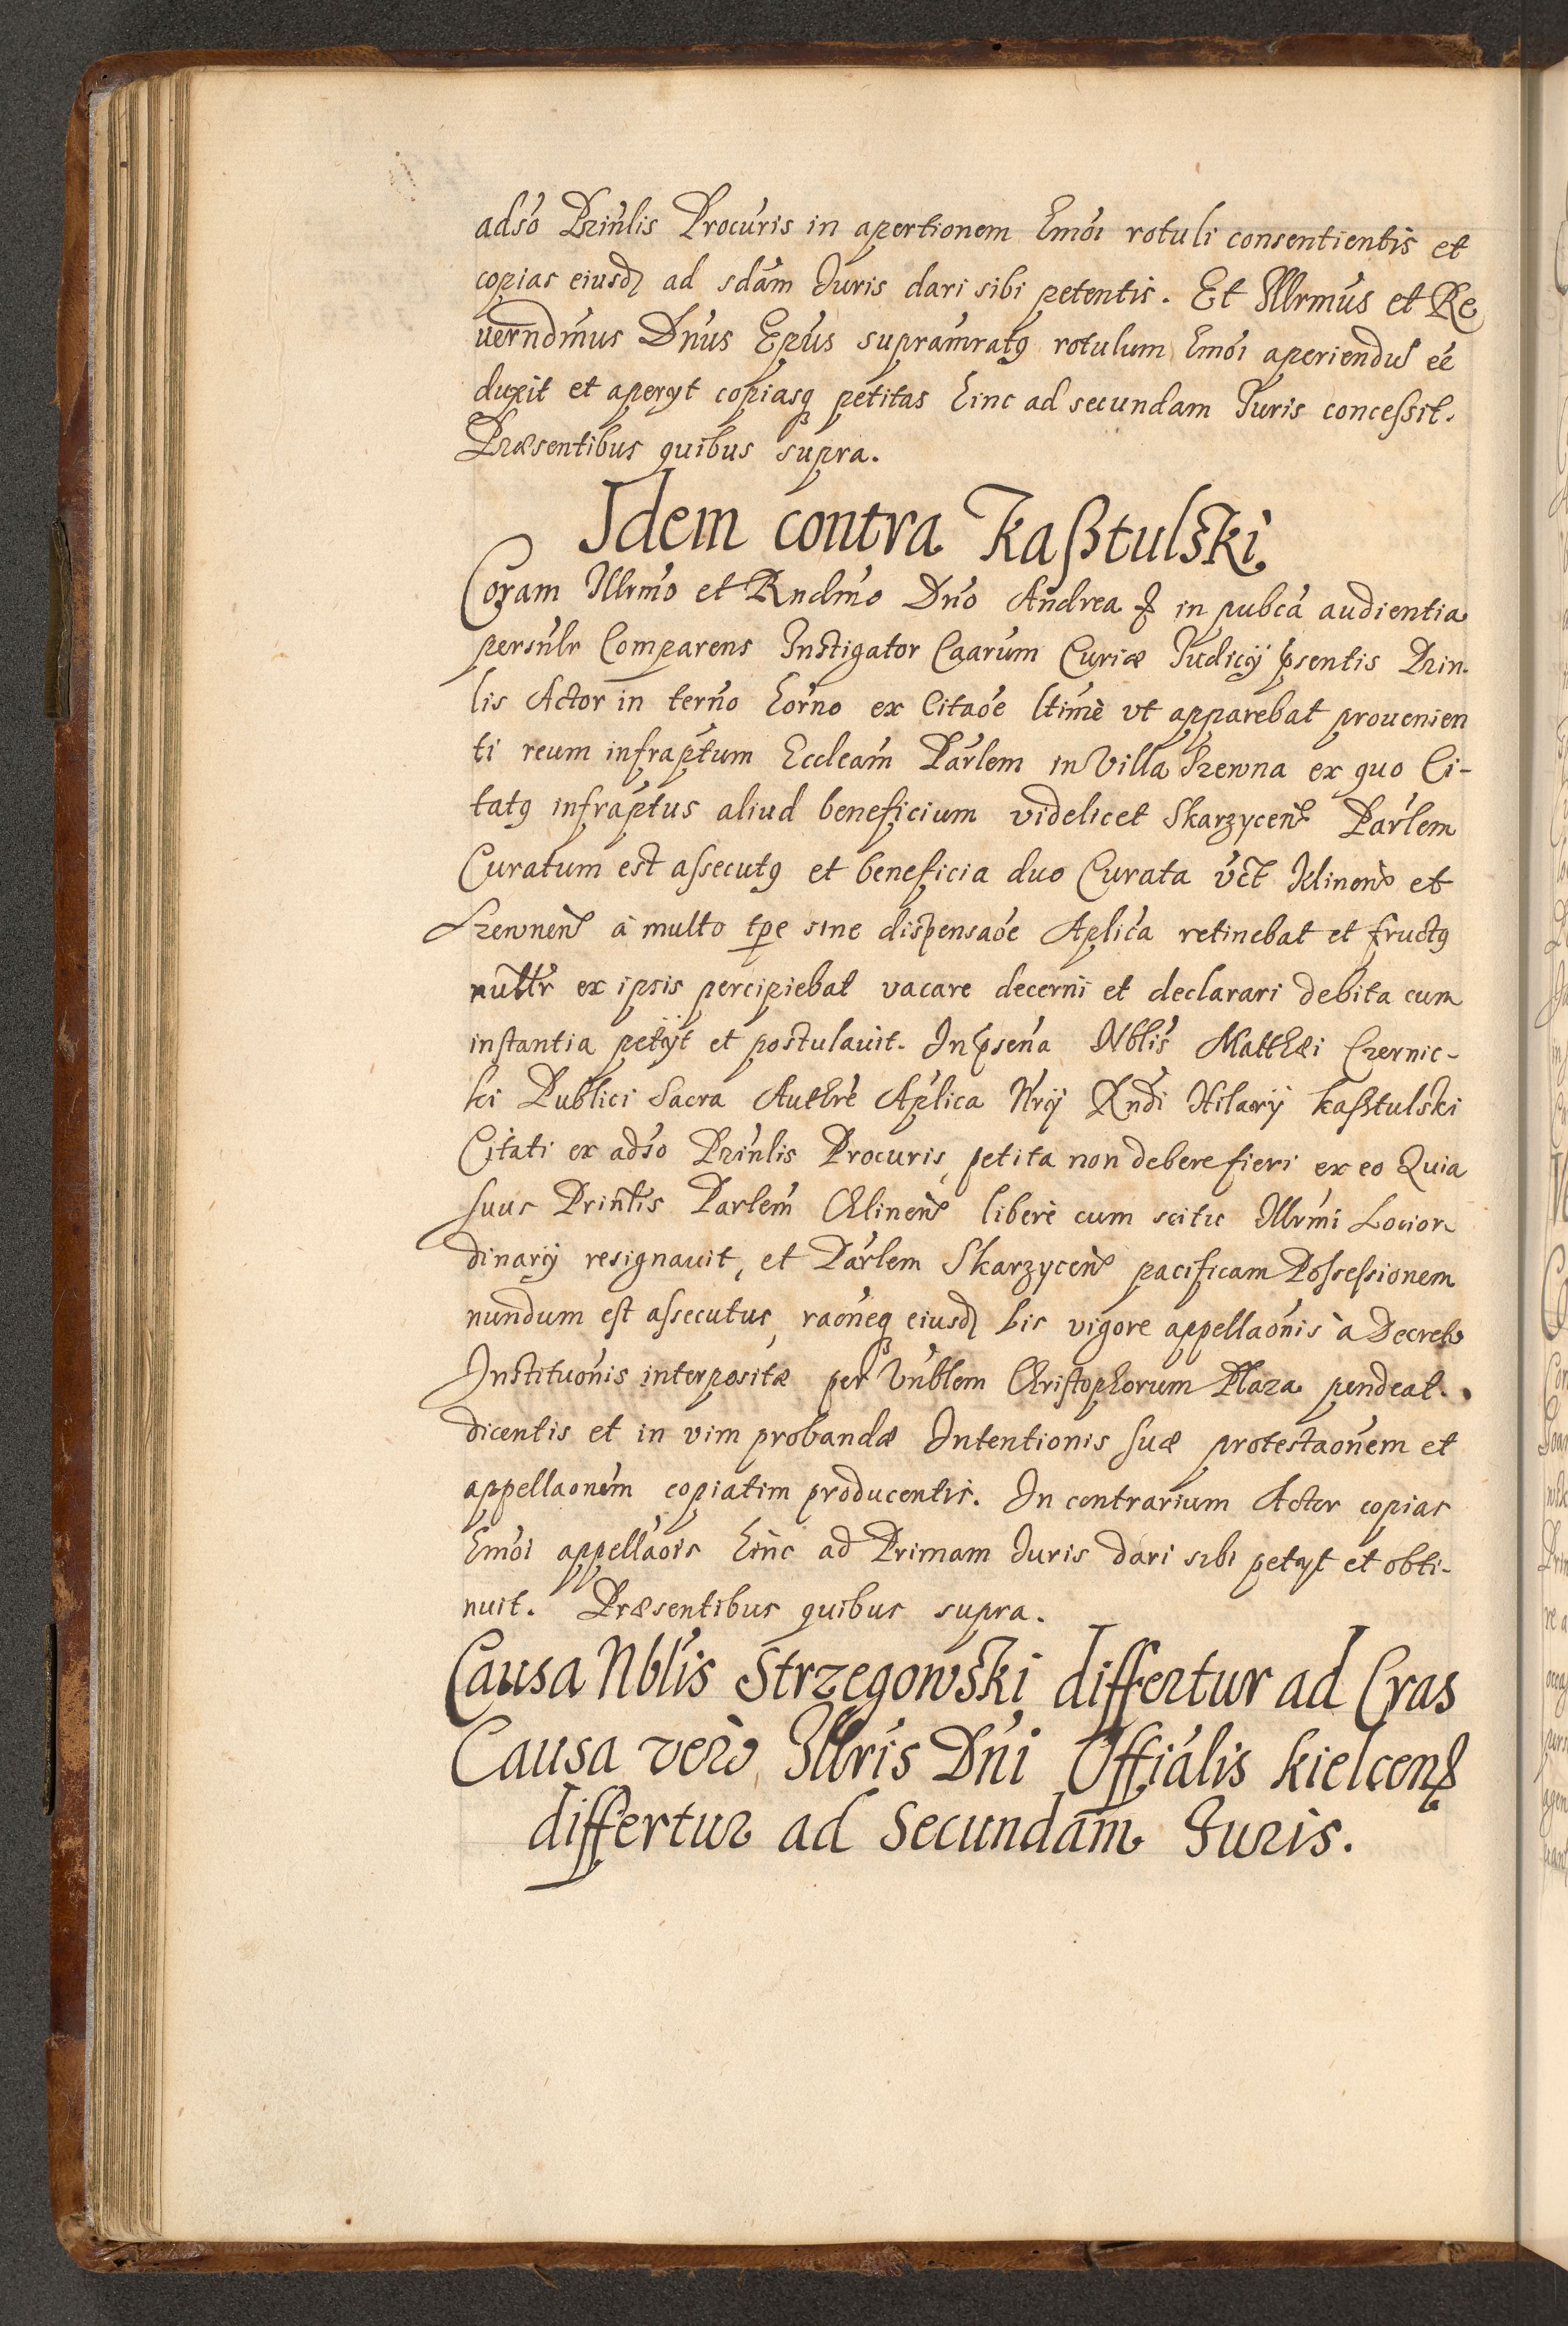 adso Prinlis Procuris in apertionem hmoi rotuli consentientis et
copias eiusd ad sdam Iuris dari sibi petentis. Et Illrmus et Re
uerndmus Dnus Epus supramratq rotulum hmoi aperiendu ee
duxit et aperyt copiasq petitas hinc ad secundam Iuris concessit.
Præsentibus quibus supra.
Idem contra Kaßtulski
Coram Illrmo et Rndmo Dno Andrea in pubca audientia
persnlr Comparens Instigator Caarum Curiæ Iudicij psentis Prin-
lis Actor in terno horno ex Citaoe ltime vt apparebat prouenien
ti reum infraptum Eccleam Parlem in Villa Trewna ex quo Ci-
tatq infraptus aliud beneficium videlicet Skarzycen Parlem
Curatum est assecutq et beneficia duo Curata vct Klinen et
Trewnen à multo tpe sine dispensaoe Aplica retinebat et fructq
nulltr ex ipsis percipiebat vacare decerni et declarari debita cum
instantia petijt et postulauit. In psena Nblis Matthæi Czernic-
ki Publici Sacra Authre Aplica Nrij Rndi Hilarij Kaßtulski
Citati ex adso Prinlis Procuris, petita non debere fieri ex eo Quia
suus Prinlis Parlem Chlinen libere cum scitu Illrmi Locior
dinarij resignauit, et Parlem Skarzycen pacificam Possessionem
nundum est assecutus, raoneq eiusd lis vigore appellaonis à Decreto
Instituonis interpositæ per Vnblem Christophorum Plaza pendeat.
dicentis et in vim probandæ Intentionis suæ protestaonem et
appellaonem copiatim producentis. In contrarium Actor copias
hmoi appellaois hinc ad Primam Iuris dari sibi petyt et obti-
nuit. Præsentibus quibus supra.
Causa Nblis Strzegowski differtur ad Cras
Causa vero Illris Dni Offialis kielcens
differtur ad Secundam Iuris.